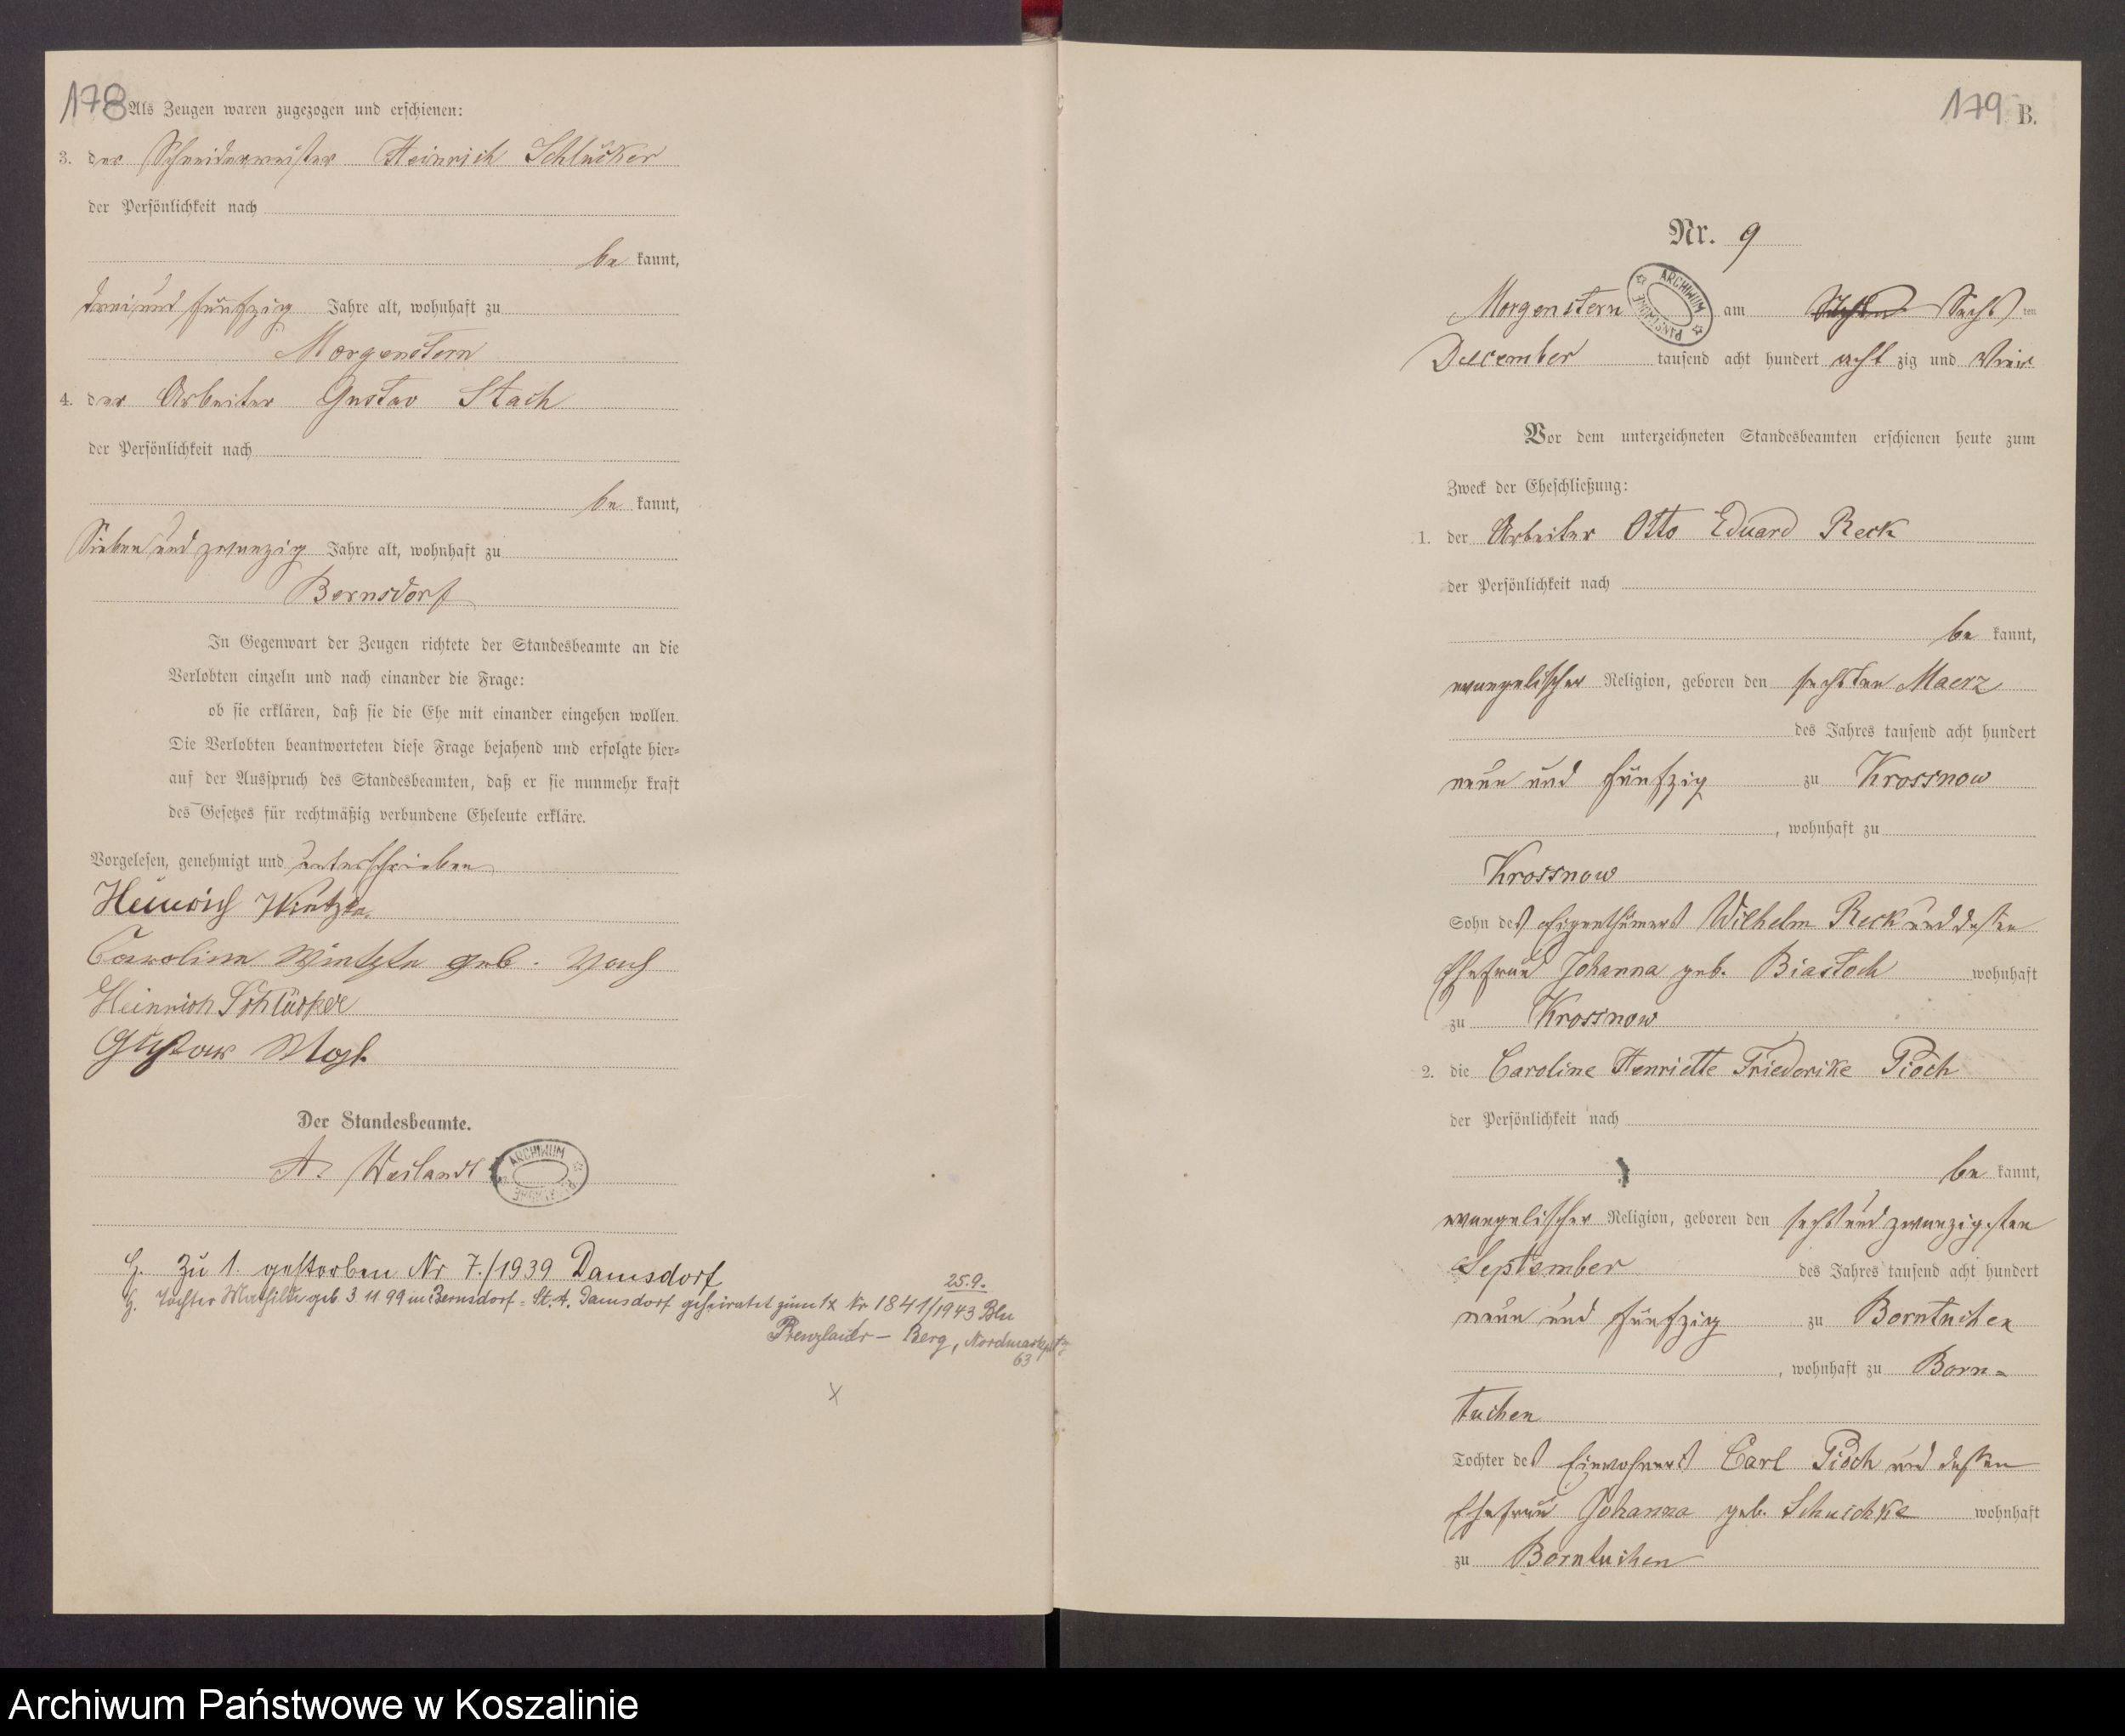 178
Als Zeugen waren zugezogen und erschienen:
3. der Schneidermeister Heinrich Schlücker
der Persönlichkeit nach
be kannt,
dreiund fünfzig Jahre alt, wohnhaft zu
Morgenstern
4. der Arbeiter Gustav Stach
der Persönlichkeit nach
be kannt,
Sieben und zwanzig Jahre alt, wohnhaft zu
Bernsdorf
In Gegenwart der Zeugen richtete der Standesbeamte an die
Verlobten einzeln und nach einander die Frage:
ob sie erklären, daß sie die Ehe mit einander eingehen wollen.
Die Verlobten beantworteten diese Frage bejahend und erfolgte hier-
auf der Ausspruch des Standesbeamten, daß er sie nunmehr kraft
des Gesetzes für rechtmäßig verbundene Eheleute erkläre.
Vorgelesen, genehmigt und unterschrieben
Heinrich
Caroline geb.
Heinrich Schlücker
Gustav
Der Standesbeamte.
A. Weilandt
ARCHIWUM
G. Zu 1. gestorben Nr 7./1939 Damsdorf
25.9.
G. Tochter Mathilde geb 3 11 99 in Bernsdorf = St. A. Damsdorf geheiratet zum 1x Nr 1841/1943 Bln
Prenzlauer - Berg, Nordmarkplatz
63
X
179 B.
Nr. 9
Morgenstern am Sechs ten
ARCHIWUM PAŃSTWOWE
December tausend acht hundert acht zig und vier
Vor dem unterzeichneten Standesbeamten erschienen heute zum
Zweck der Eheschließung:
1. der Arbeiter Otto Eduard Reck
der Persönlichkeit nach
be kannt,
evangelischer Religion, geboren den sechsten Maerz
des Jahres tausend acht hundert
neun und fünfzig zu Krossnow
, wohnhaft zu
Krossnow
Sohn des Eigenthümers Wilhelm Reck und dessen
Ehefrau Johanna geb. Biastoch wohnhaft
zu Krossnow
2. die Caroline Henriette Friederike Pioch
der Persönlichkeit nach
be kannt,
evangelischer Religion, geboren den sechsund zwanzigsten
September des Jahres tausend acht hundert
neun und fünfzig zu Borntuchen
, wohnhaft zu Born=
tuchen
Tochter des Einwohners Carl Pioch und dessen
Ehefrau Johanna geb. Schuichke wohnhaft
zu Borntuchen
Archiwum Państwowe w Koszalinie